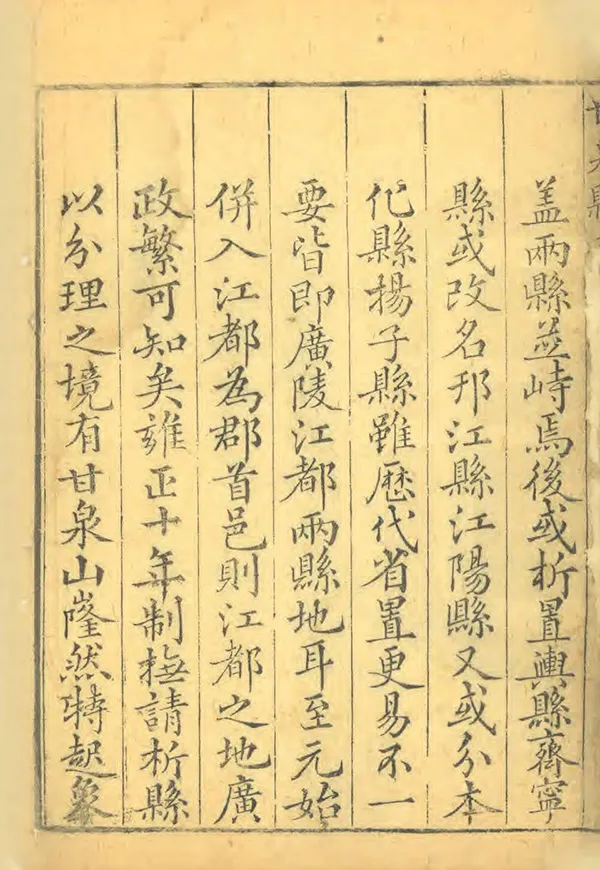 甘泉縣
盖兩縣並峙焉後或析置輿縣齊寧
縣或改名邗江縣江陽縣又或分本
化縣揚子縣雖歷代省置更易不一
要皆即廣陵江都兩縣地耳至元始
併入江都為郡首邑則江都之地廣
政繁可知矣雍正十年制撫請析縣
以分理之境有甘泉山隆然特起象